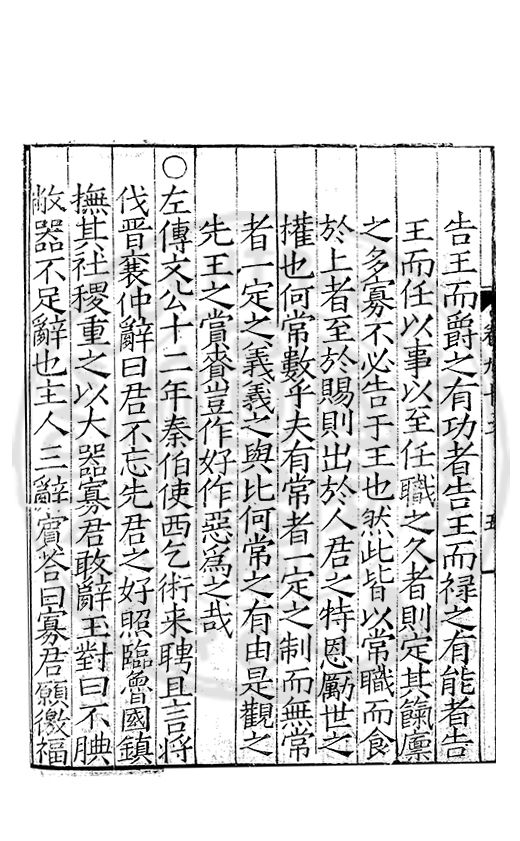 告王而爵之有功者告王而禄之有能者告
王而任以事以至任職之久者則定其餼廩
之多寡不必告于王也然此皆以常職而食
於上者至於賜則出於人君之特恩勵世之
㩲也何常數乎夫有常者一定之制而無常
者一定之義義之與比何常之有由是觀之
先王之賞賚豈作好作惡爲之哉
○左傳文公十二年秦伯使西乞術来聘且言将
伐晋襄仲辭曰君不忘先君之好照臨魯國鎮
撫其社稷重之以大器寡君敢辭玉對曰不腆
敝器不足辭也主人三辭賓荅曰寡君願徼福